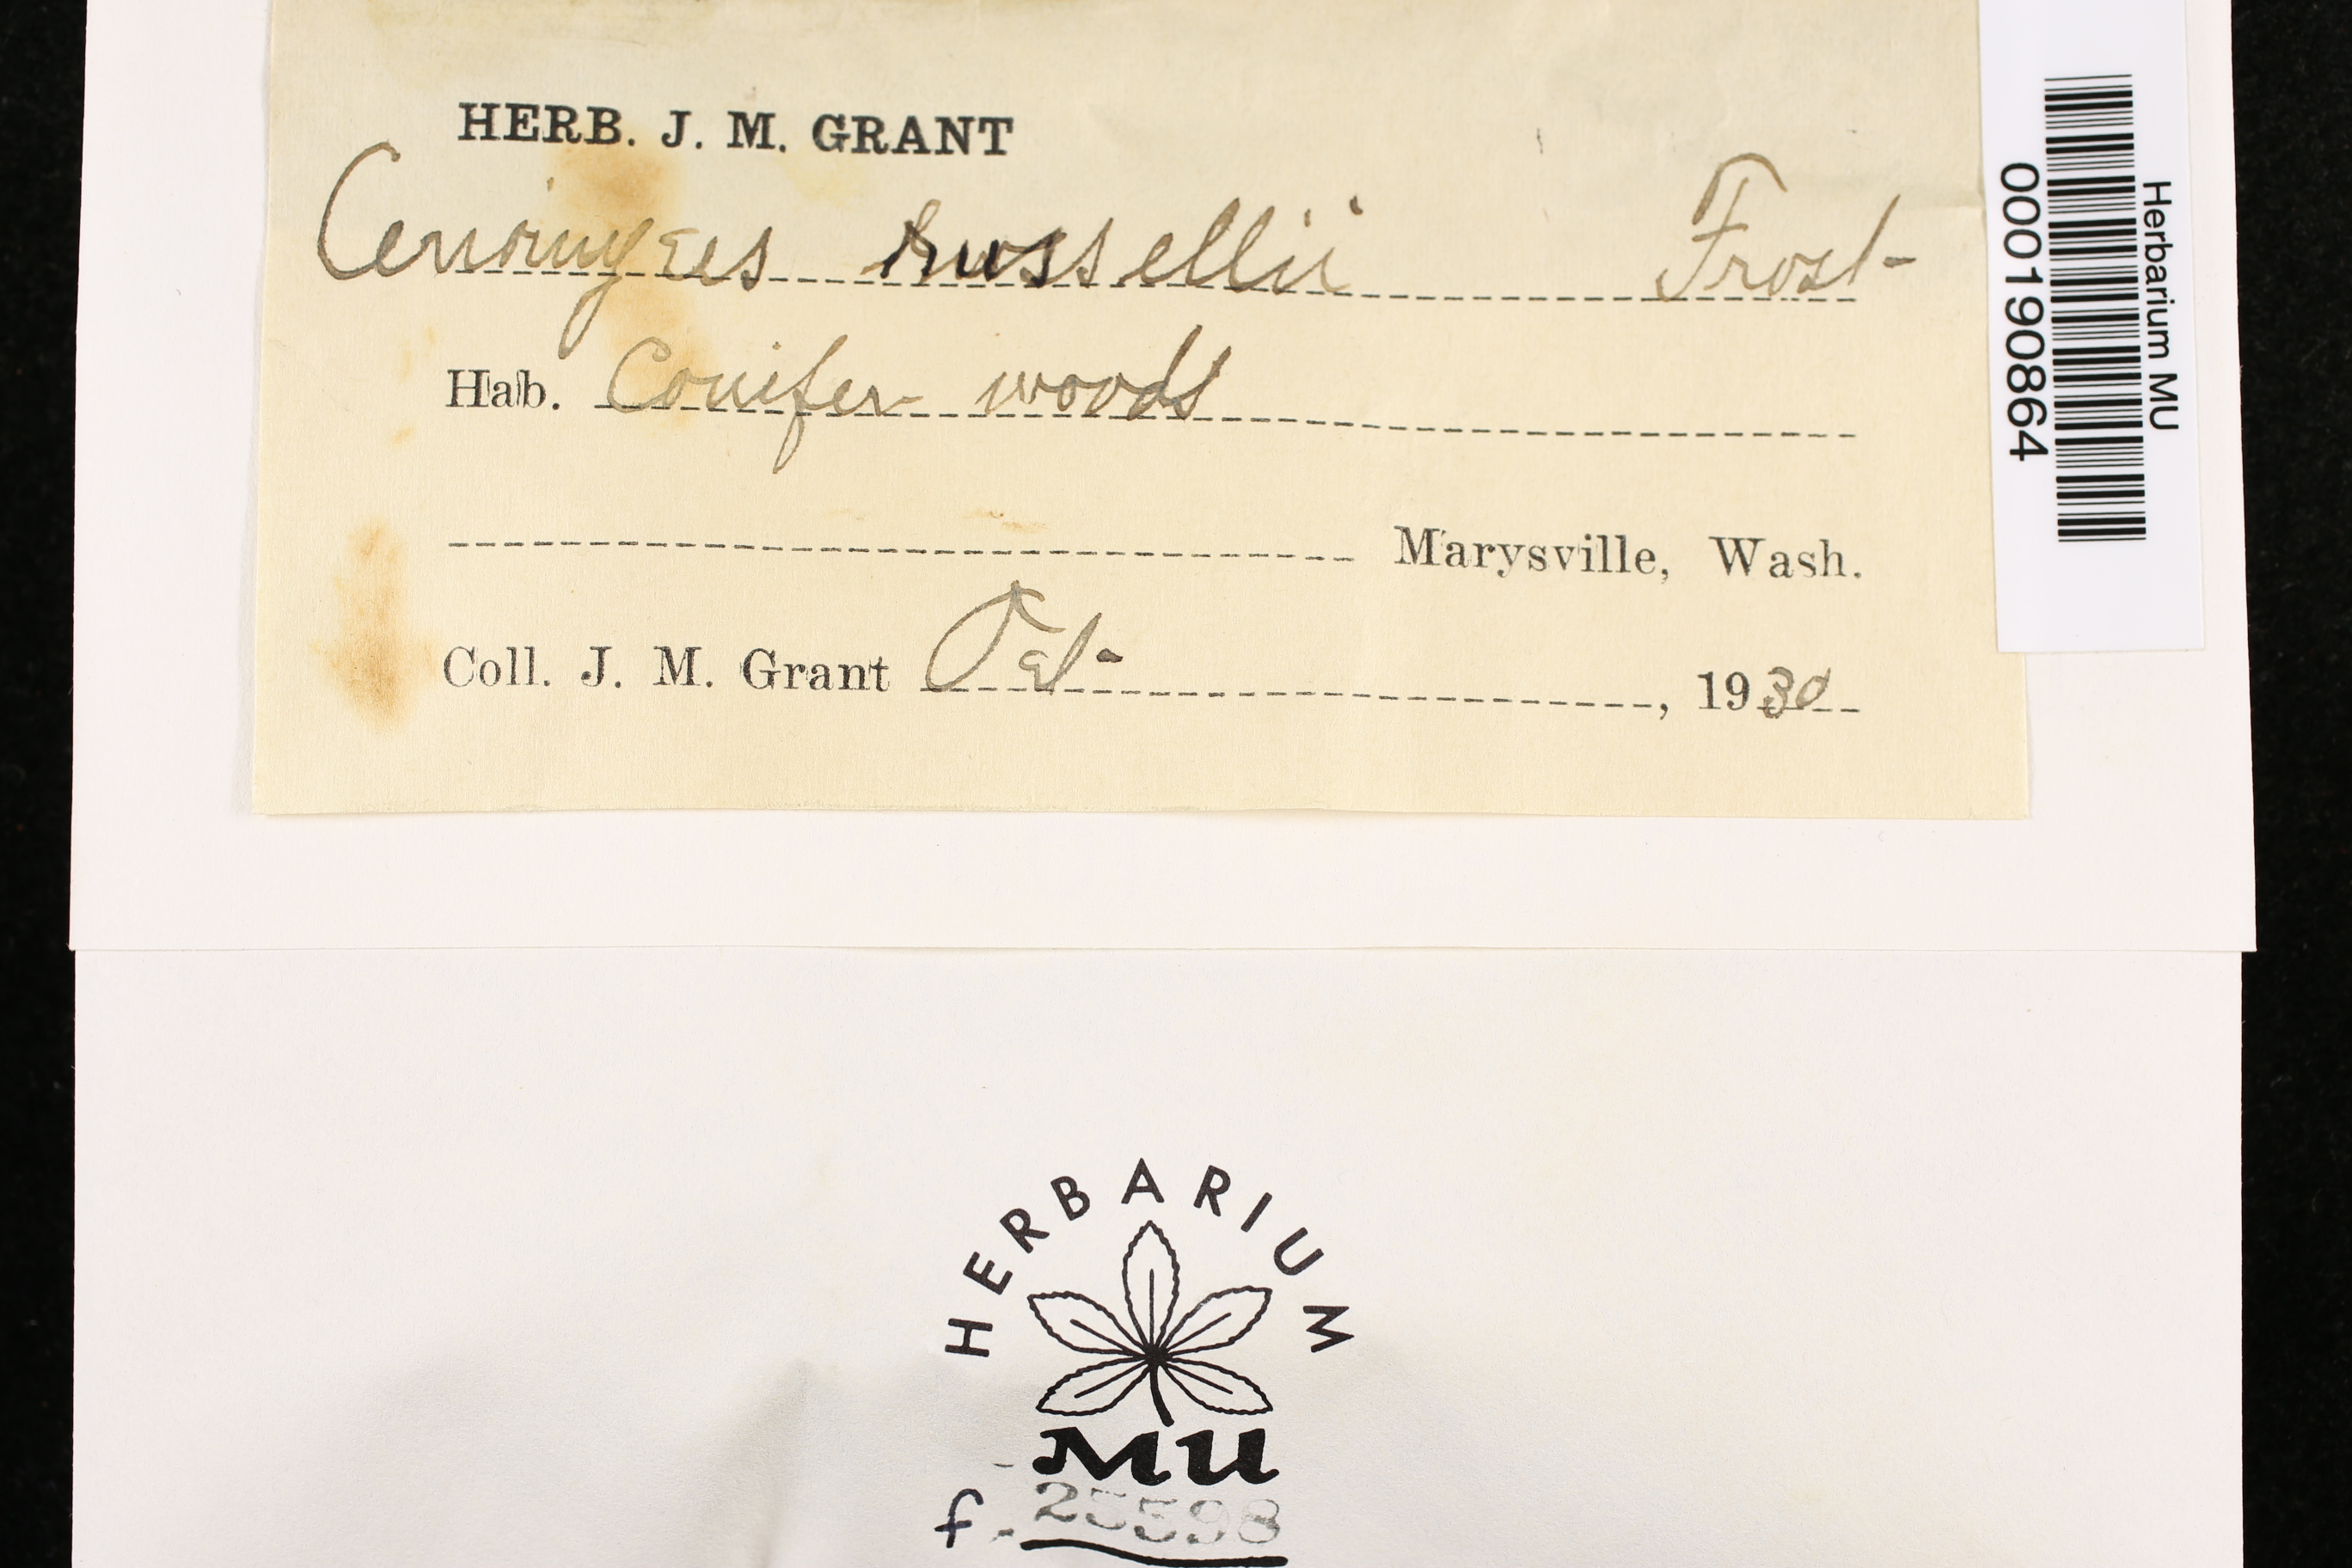 HERB. J. M. GRANT
Ceriomyces russellii Frost
Hab. Conifer woods
Marysville, Wash.
Coll. J. M. Grant Oct- , 1930
Herbarium MU
000190864
HERBARIUM
MU
f. 25598